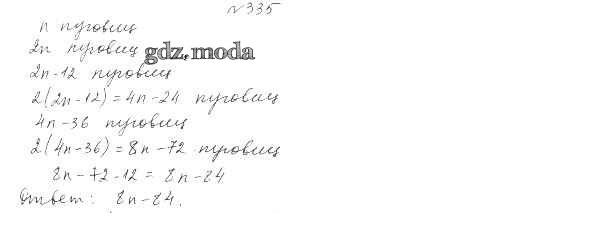 №335
n пуговиц
2n пуговиц
gdz.moda
2n-12 пуговиц
2(2n-12)=4n-24 пуговиц
4n-36 пуговиц
2(4n-36)=8n-72 пуговиц
8n-72-12=8n-84
Ответ: 8n-84.